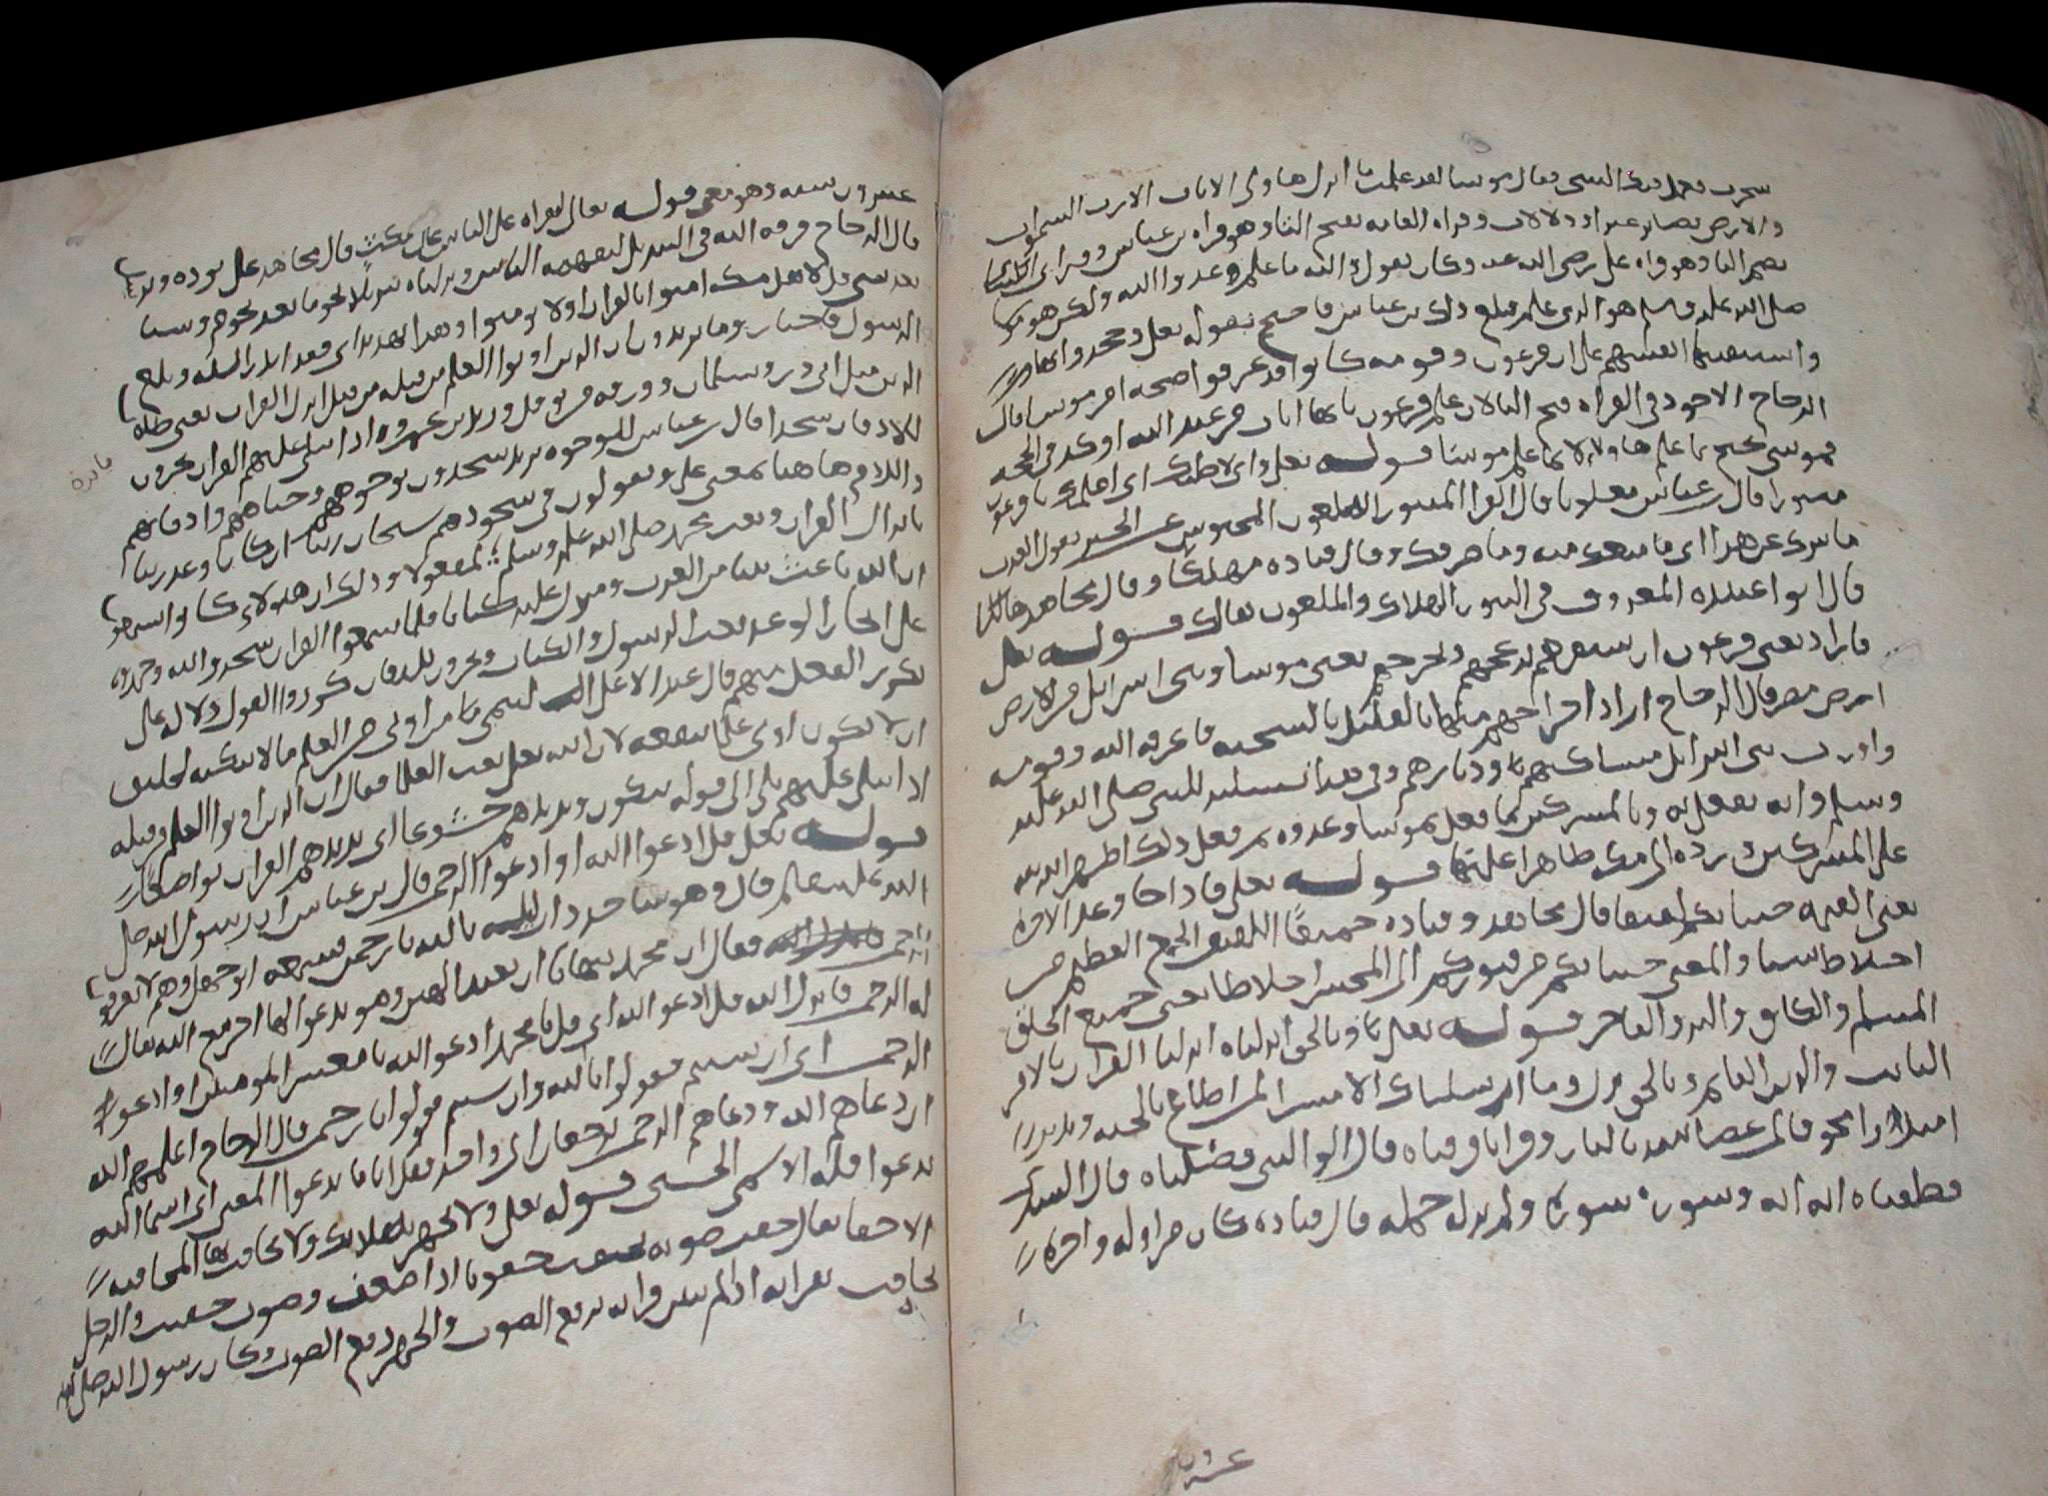 سحرت فعمل فيك السحر فقال موسا لقد علمت ما انزل هاولى الايات الا رب السموات
والارض بصاير عبرا ودلالات وقراه العامه بفتح التا وهو قراه بن عباس وقرا الكسائي
بضم التا وهو قراه علي رضي الله عنه وكان يقول والله ما علم عدو الله ولكن هو موسا
صلى الله عليه وسلم هو الذي علم فبلغ ذلك بن عباس فاحتج بقوله تعلى وجحدوا بها
واستيقنتها انفسهم على ان فرعون وقومه كانوا قد عرفوا صحه امر موسا قال
الزجاج الاجود في القراه فتح التا لان علم فرعون بانها ايات من عند الله اوكد في الحجه
فموسى يحتج بما علم هاولا لا بما علم موسا قوله تعلى واني لاظنك اي لاعلمك يا فرعون
مثبورا قال بن عباس ملعونا قال الفرا المثبور الملعون المحبوس عن الخير يقول العرب
ما ثبرك عن هذا اي ما منعك منه وما صرفك وقال قتاده مهلكا وقال مجاهد هالكا
قال ابو عبيده المعروف في الثبور الهلاك والملعون هالك قوله تعلى
فاراد يعني فرعون ان يستفزهم يزعجهم ويخرجهم يعني موسا وبني اسرايل من الارض
ارض مصر قال الزجاج اراد اخراجهم منها بالقتل او بالتنحيه فاغرقه الله وقومه
واورث بني اسرايل مساكنهم وديارهم وفي هذا تسليه للنبي صلى الله عليه
وسلم وانه يفعل به وبالمشركين كما فعل بموسا وعدوه ثم فعل ذلك اظهره الله
على المشركين ورده الى مكه ظاهرا عليها قوله تعلى فاذا جا وعد الاخره
يعني القيمه جينا بكم لفيفا قال مجاهد وقتاده جميعا اللفيف الجمع العظيم من
اخلاط شتى والمعنى جينا بكم من قبوركم الى المحشر اخلاطا يعني جميع الخلق
المسلم والكافر والبر والفاجر قوله تعلى وبالحق انزلناه انزلنا القران بالامر
الثابت والدين القايم وبالحق نزل وما ارسلناك الا مبشرا لمن اطاع بالجنه ونذيرا
لمن عصا بالنار وقرانا فرقناه قال ابو الليث فصلناه قال السدي
قطعناه ايه ايه وسوره سوره ولم ينزله جمله قال قتاده كان من اوله واخره
عشرون
عشرون سنه وهو معنى قوله تعالى لتقراه على الناس على مكث قال مجاهد على تؤده
قال الزجاج فرقه الله في التنزيل ليفهمه الناس ونزلناه تنزيلا نجوما بعد نجوم وشيا
بعد شي قل لاهل مكه امنوا بالقران او لا تومنوا وهذا تهديد اي فقد انذر الله وبلغ
الرسول فاختاروا ما تريدون ان الذين اوتوا العلم من قبله من قبل انزال القران يعني طلاب
الدين مثل ابي ذر وسلمان وورقه بن نوفل وزيد بن عمرو اذا يتلى عليهم القران يخرون
للاذقان سجدا قال بن عباس للوجوه يريد يسجدون بوجوههم وجباههم واذقانهم
واللام هاهنا بمعنى على ويقولون في سجودهم سبحان ربنا ان كان وعد ربنا
بانزال القران وبعث محمد صلى الله عليه وسلم لمفعولا وذلك ان هولاي كانوا سمعوا
ان الله باعث نبيا من العرب ومنزل عليه كتابا فلما سمعوا القران سجدوا لله وحمدوه
على انجاز الوعد ببعث الرسول والكتاب ويخرون للاذقان كرروا القول دلاله على
تكرير الفعل منهم قال عبد الاعلى التيمي من اوتي من العلم ما لا يبكيه لخليق
ان لا يكون اوتي علما ينفعه لان الله تعلى نعت العلما فقال ان الذين اوتوا العلم من قبله
اذا يتلى عليهم الى قوله يبكون ويزيدهم خشوعا اي يزيدهم القران تواضعا
قوله تعلى قل ادعوا الله او ادعوا الرحمن قال بن عباس ان رسول الله صلى
الله عليه وسلم قال وهو ساجد ذات ليله يا الله يا رحمن فسمعه ابو جهل وهم لا يعرفون
الرحمن فقال ان محمد ينهانا ان نعبد الهين وهو يدعو الها اخر مع الله يقال
له الرحمن فانزل الله قل ادعوا الله اي قل يا محمد ادعوا الله يا معشر المومنين او ادعوا
الرحمن اي ان شيتم فقولوا يا الله وان شيتم قولوا يا رحمن قال الزجاج اعلمهم الله
ان دعاهم الله ودعاهم الرحمن يرجعان الى واحد فقال ايا ما تدعوا المعنى اي اسما الله
تدعوا فله الاسمى الحسنى قوله تعلى ولا تجهر بصلاتك ولا تخافت بها المخافته
الاخفا يقال خفت صوته يخفت خفوتا اذا ضعف وصوت خفيت والرجل
يخافت بقرايه اذا لم يبين قراته برفع الصوت والجهر رفع الصوت وكان رسول الله صلى الله